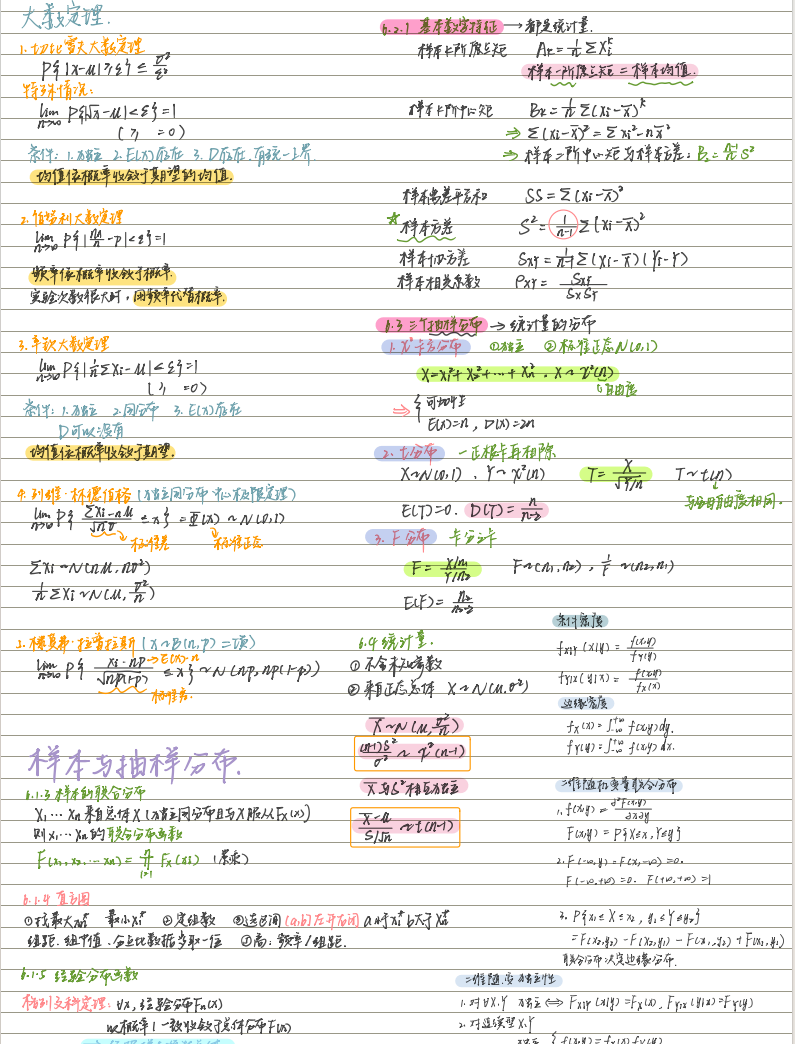 大数定理.
1. 切比雪夫大数定理
P{|x-μ|≥ε} ≤ σ²/ε²
特殊情况:
lim n→∞ P{|x̄-μ|<ε}=1
(≥, =0)
条件: 1.独立 2.E(x)存在 3.D存在.有统一上界
均值依概率收敛于期望的均值.
2. 伯努利大数定理
lim n→∞ P{|m/n - p|<ε}=1
频率依概率收敛于概率.
实验次数很大时,用频率代替概率.
3. 辛钦大数定理
lim n→∞ P{|1/n Σxi - μ|<ε}=1
(≥, =0)
条件: 1.独立 2.同分布 3.E(x)存在
D可以没有
均值依概率收敛于期望.
4. 列维·林德伯格 (独立同分布 中心极限定理)
lim n→∞ P{ (Σxi-nμ)/(√n σ) ≤ x } = Φ(x) ~ N(0,1)
标准差 标准正态
Σxi ~ N(nμ, nσ²)
1/n Σxi ~ N(μ, σ²/n)
5. 棣莫弗·拉普拉斯 (X~B(n,p) 二项)
lim n→∞ P{ (xi-np)/√(np(1-p)) ≤ x } ~ N(np, np(1-p))
标准差.
样本与抽样分布.
6.1.3 样本的联合分布
X₁,…Xn 来自总体X (独立同分布且与X服从Fx(x))
则x₁,…xn的联合分布函数
F(x₁,x₂,…xn) = ∏ Fx(xi) (累乘)
6.1.4 直方图
①找最大 最小 ②定组数 ③选区间(a,b]左开右闭
组距. 组中值. 分点比数据多取一位 ④高: 频率/组距.
6.1.5 经验分布函数
格列文科定理: ∀x, 经验分布Fn(x)
以概率1一致收敛于总体分布F(x)
6.2.1 基本数字特征 → 都是统计量.
样本k阶原点矩 Ak = 1/n ΣXi^k
样本一阶原点矩 = 样本均值.
样本k阶中心矩 Bk = 1/n Σ(xi-x̄)^k
⇒ Σ(xi-x̄)² = Σxi² - nx̄²
⇒ 样本二阶中心矩与样本方差: B₂ = (n-1)/n S²
样本离差平方和 SS = Σ(xi-x̄)²
☆ 样本方差 S² = 1/(n-1) Σ(xi-x̄)²
样本协方差 Sxy = 1/(n-1) Σ(xi-x̄)(Yi-Ȳ)
样本相关系数 ρxy = Sxy/(SxSy)
6.3 三个抽样分布 → 统计量的分布
1. χ²卡方分布 ①独立 ②标准正态N(0,1)
X=x₁²+x₂²+…+xn², X~χ²(n)
自由度
⇒ { 可加性
E(x)=n, D(x)=2n
2. t分布 一正根卡再相除
X~N(0,1), Y~χ²(n) T= X/√(Y/n) T~t(n)
E(T)=0. D(T)= n/(n-2)
3. F分布 卡分之卡
F = (X/n₁)/(Y/n₂) F~(n₁,n₂), 1/F ~(n₂,n₁)
E(F) = n₂/(n₂-2)
6.4 统计量.
① 不含未知参数
② 来自正态总体 X~N(μ,σ²)
X̄~N(μ, σ²/n)
(n-1)S²/σ² ~ χ²(n-1)
X̄与S²相互独立
(X̄-μ)/(S/√n) ~ t(n-1)
条件密度
fX|Y(x|y) = f(x,y)/fY(y)
fY|X(y|x) = f(x,y)/fX(x)
边缘密度
fX(x) = ∫_{-∞}^{+∞} f(x,y)dy.
fY(y) = ∫_{-∞}^{+∞} f(x,y)dx.
二维随机变量联合分布
1. f(x,y) = ∂²F(x,y)/∂x∂y
F(x,y) = P{X≤x, Y≤y}
2. F(-∞,y) = F(x,-∞) = 0.
F(-∞,+∞) = 0. F(+∞,+∞) = 1
3. P{x₁≤X≤x₂, y₁≤Y≤y₂}
= F(x₂,y₂) - F(x₂,y₁) - F(x₁,y₂) + F(x₁,y₁)
联合分布决定边缘分布.
二维随.变独立性
1. 对∀X,Y 独立 ⇔ FX|Y(x|y)=FX(x), FY|X(y|x)=FY(y)
2. 对连续型X,Y